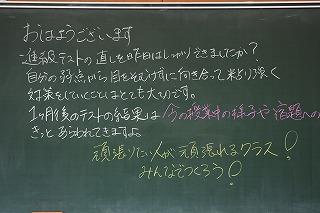 おはようございます
進級テストの直しを昨日はしっかりできましたか？
自分の弱点から目をそむけずに向き合って粘り強く
対策をしていくことはとても大切です。
1ヶ月後のテストの結果は今の授業中の様子や宿題への
きっとあらわれてきますよ。
頑張りたい人が頑張れるクラス！
みんなでつくろう！